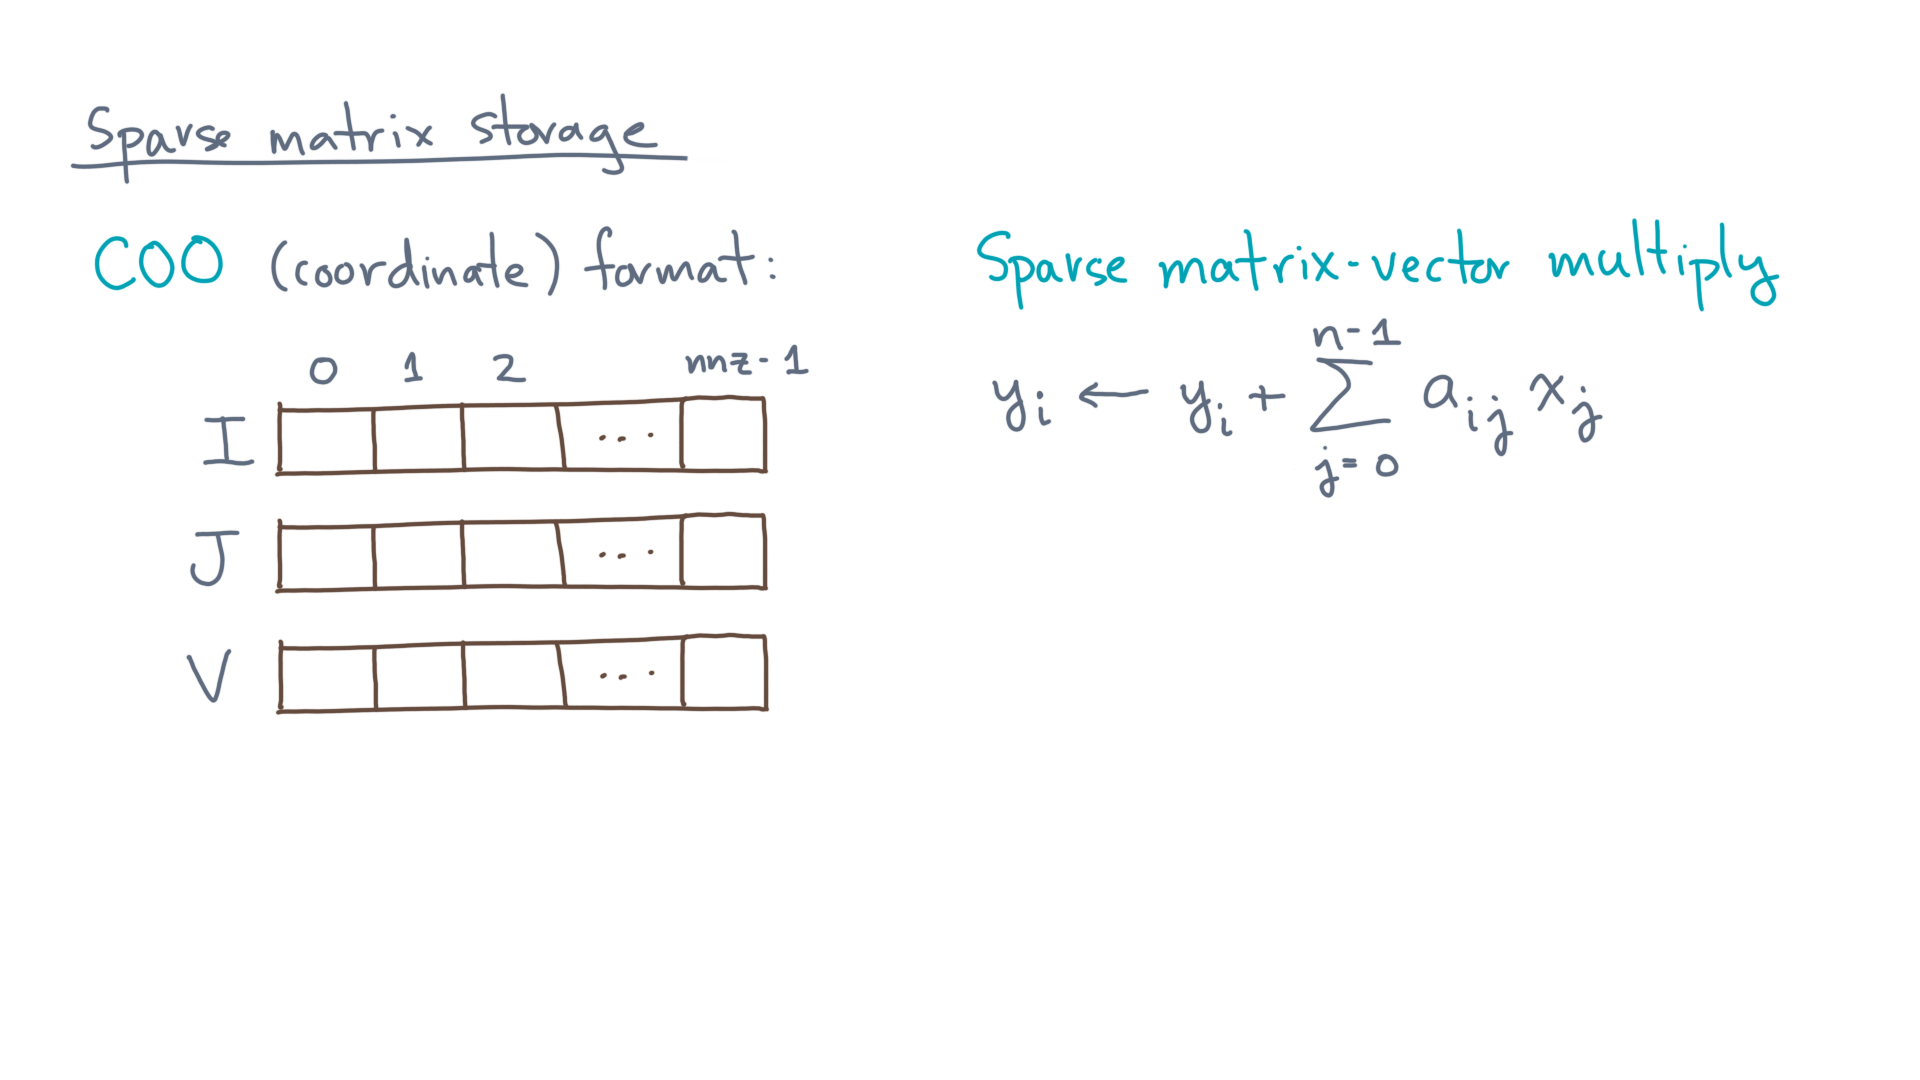 Sparse matrix storage
COO (coordinate) format:
0 1 2 nnz-1
I ...
J ...
V ...
Sparse matrix-vector multiply
n-1
yi ← yi + ∑ aij xj
j=0